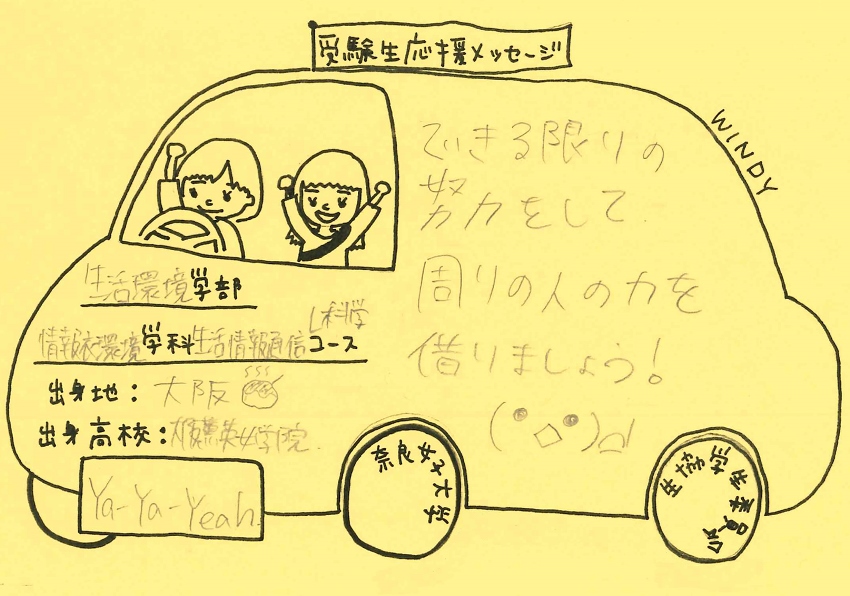 受験生応援メッセージ
WINDY
できる限りの
努力をして
周りの人の力を
借りましょう!
生活環境学部
情報衣環境学科生活情報通信科学コース
出身地:大阪
出身高校:大阪薫英女学院
Ya-Ya-Yeah.
奈良女子大学
生協学生委員会